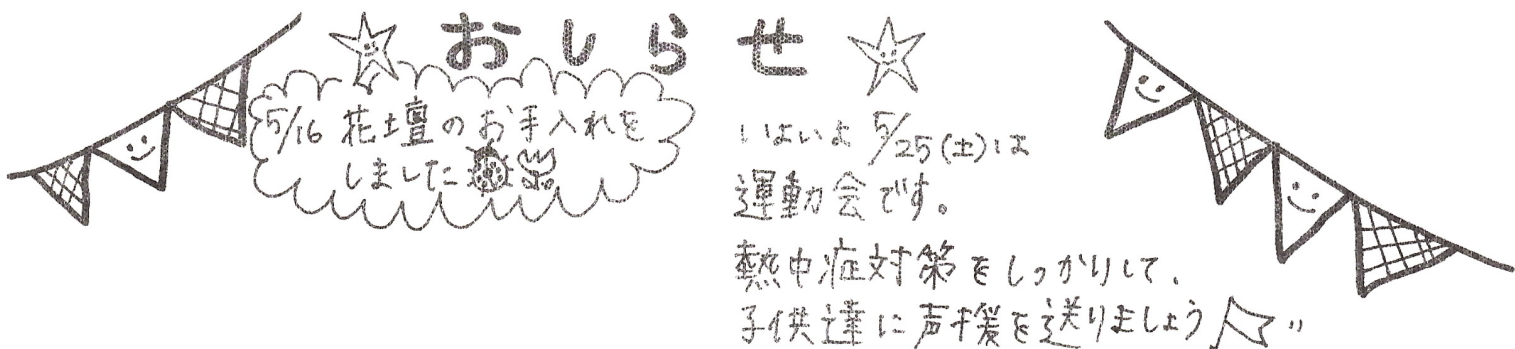 おしらせ
5/16 花壇のお手入れを
しました
いよいよ 5/25(土)は
運動会です。
熱中症対策をしっかりして、
子供達に声援を送りましょう